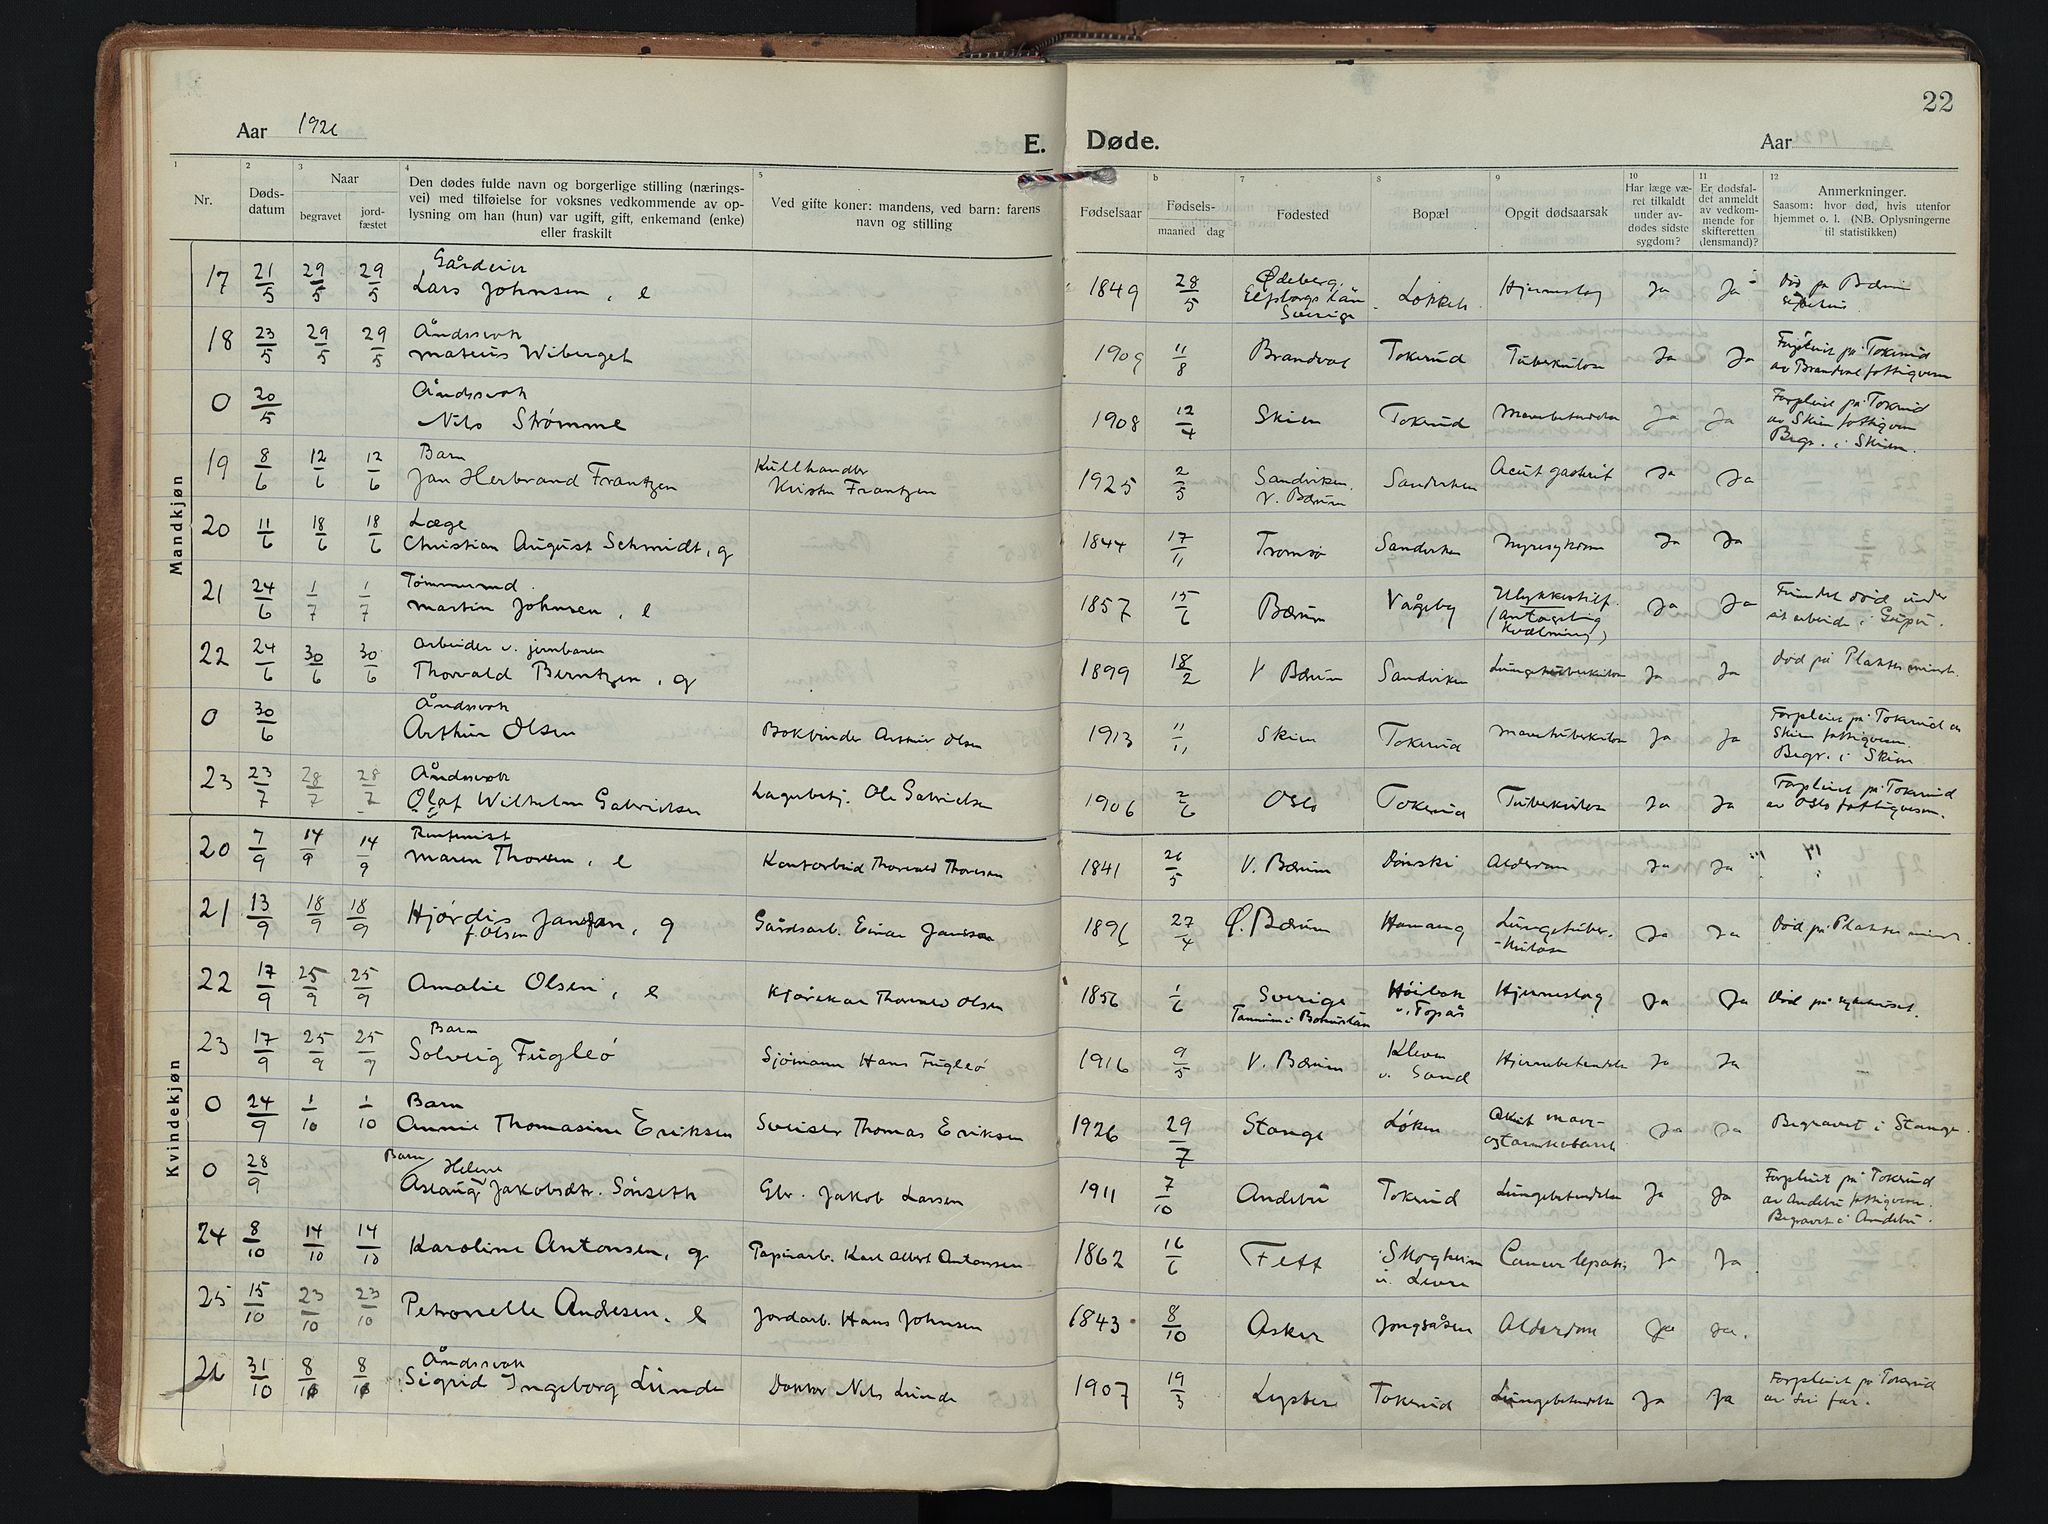 22
Aar 1926
E. Døde.
Aar
1 Nr.
2 Døds-datum
3 Naar begravet jord-fæstet
4 Den dødes fulde navn og borgerlige stilling (nærings-
vei) med tilføielse for voksnes vedkommende av op-
lysning om han (hun) var ugift, gift, enkemand (enke)
eller fraskilt
5 Ved gifte koner: mandens, ved barn: farens
navn og stilling
Fødselsaar
6 Fødsels-
maaned dag
7 Fødested
8 Bopæl
9 Opgit dødsaarsak
10 Har læge væ-
ret tilkaldt
under av-
dødes sidste
sygdom?
11 Er dødsfal-
det anmeldt
av vedkom-
mende for
skifteretten
(lensmand)?
12 Anmerkninger.
Saasom: hvor død, hvis utenfor
hjemmet o. l. (NB. Oplysningerne
til statistikken)
Mandkjøn
17 21/5 29/5 29/5 Gårdeier Lars Johnsen, e 1849 28/5 Ødeberg, Elfsborgs län Sverige Løkken Hjerneslag Ja Ja Død på Bærum
18 23/5 29/5 29/5 Åndssvak Mateus Wiberget 1909 11/8 Brandval Tokerud Tuberkulose Ja Ja Forpleiet på Tokerud
av Brandval fattigvesen
0 20/5 Åndssvak Nils Strømme 1908 12/4 Skien Tokerud Ja Ja Forpleiet på Tokerud
av Skien fattigvesen
Begr. i Skien.
19 8/6 12/6 12/6 Barn Jan Herbrand Frantzen Kullhandler Kristen Frantzen 1925 2/5 Sandviken V. Bærum Sandviken Acut gastrit Ja Ja
20 11/6 18/6 18/6 Læge Christian August Schmidt, g 1844 17/11 Tromsø Sandviken Nyresykdom Ja Ja
21 24/6 1/7 1/7 Tømmermd. Martin Johnsen, e 1857 15/6 Bærum Vågeby Ulykkestilf. (antagelig kvælning) Ja Ja Fundet død under
sit arbeide i
22 24/6 30/6 30/6 Arbeider v. jernbanen Thorvald Berntzen, g 1899 18/2 V Bærum Sandviken Lungetuberkulose Ja Ja Død på
0 30/6 Åndssvak Arthur Olsen Bokbinder Arthur Olsen 1913 11/11 Skien Tokerud Mavetuberkulose Ja Ja Forpleiet på Tokerud av
Skien fattigvesen.
Begr. i Skien
23 23/7 28/7 28/7 Åndssvak Olaf Wilhelm Gabrielsen Lagerbetj. Ole Gabrielsen 1906 2/6 Oslo Tokerud Tuberkulose Ja Ja Forpleiet på Tokerud
av Oslo fattigvesen.
Kvindekjøn
20 7/9 14/9 14/9 Maren Thoresen, e Kontorbud Thorvald Thoresen 1841 26/5 V. Bærum Dønski Alderdom Ja Ja
21 13/9 18/9 18/9 Hjørdis Jansen, g f. Olsen Gårdsarb. Einar Jansen 1896 27/4 Ø. Bærum Hamang Lungetuber-kulose Ja Ja Død på
22 17/9 25/9 25/9 Amalie Olsen, e Kjørekar Thorvald Olsen 1856 1/6 Sverige Tanum i Bohuslän Høibak v. Topås Hjerneslag Ja Ja Død på sykehuset.
23 17/9 25/9 25/9 Barn Solveig Fugleø Sjømann Hans Fugleø 1916 9/5 V. Bærum Kleven v. Sand Hjernebetendelse Ja Ja
0 24/9 1/10 1/10 Barn Annie Thomasine Eriksen Sveiser Thomas Eriksen 1926 29/7 Stange Løken Akut mave- og tarmkatarrh Ja Ja Begravet i Stange.
0 28/9 Barn Aslaug Helene Jakobsdtr. Sønseth Gbr. Jakob Larsen 1911 7/10 Andebu Tokerud Lungebetendelse Ja Ja Forpleiet på Tokerud
av Andebu fattigvesen.
Begravet i Andebu.
24 8/10 14/10 14/10 Karoline Antonsen, g Papirarb. Karl Albert Antonsen 1862 16/6 Fett Skogheim v. Levre Cancer hepatis Ja Ja
25 15/10 23/10 23/10 Petronelle Andresen, e Jordarb. Hans Johnsen 1843 8/10 Asker Jongsåsen Alderdom Ja Ja.
26 31/10 8/11 8/11 Åndssvak Sigrid Ingeborg Lunde Doktor Nils Lunde 1907 19/3 Lyster Tokerud Lungebetendelse Ja Ja Forpleiet på Tokerud
av sin far.